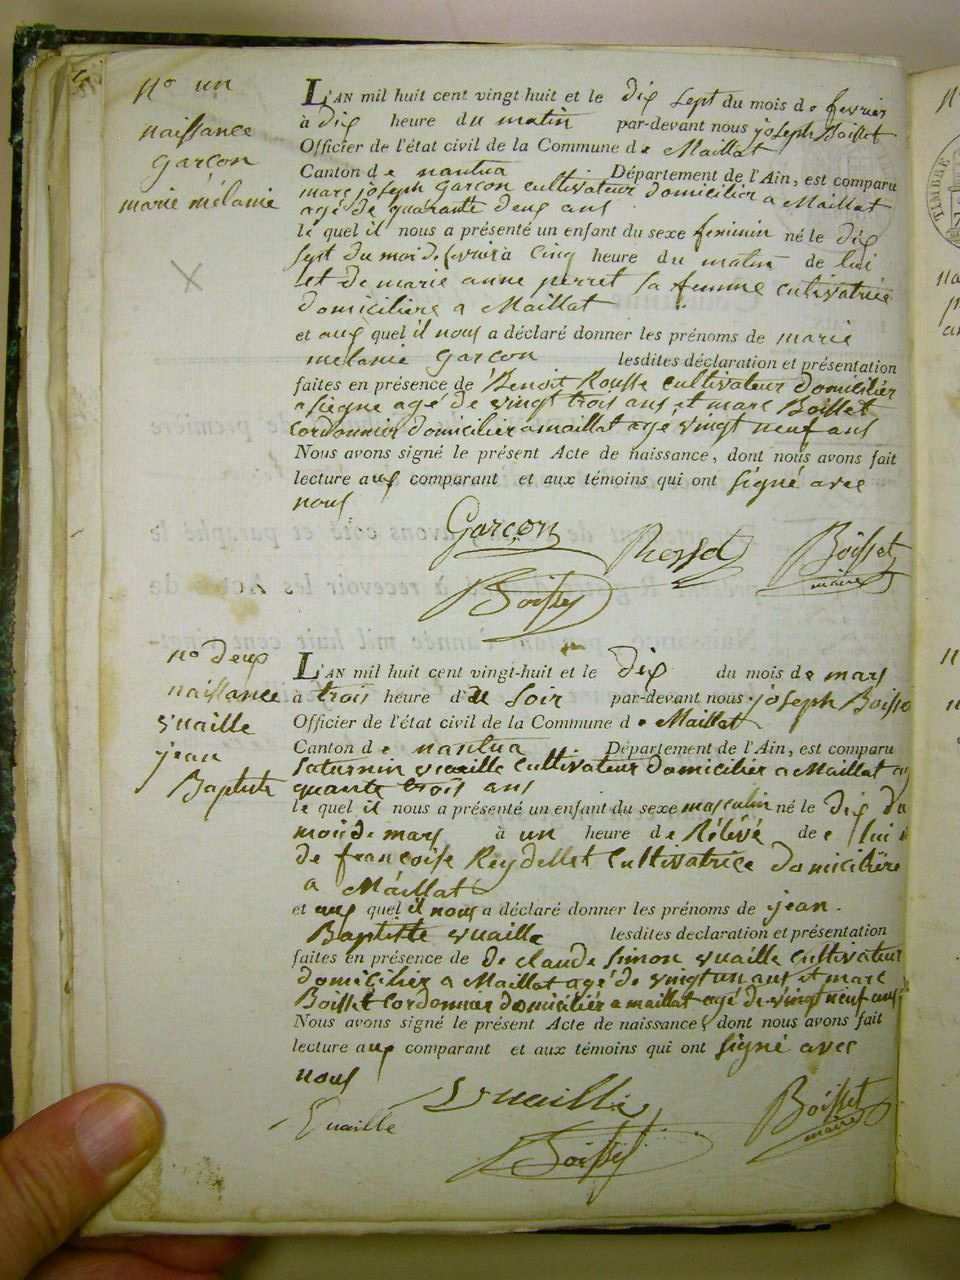 No un
naissance
Garçon
marie mélanie
L'AN mil huit cent vingt huit et le dix sept du mois de fevrier
à dix heure du matin par-devant nous joseph Boisset
Officier de l'état civil de la Commune de Maillat
Canton de nantua Département de l'Ain, est comparu
marc joseph Garçon cultivateur domicilier a Maillat
agé de quarante deux ans
le quel il nous a présenté un enfant du sexe feminin né le dix
sept du moi de fevrier à cinq heure du matin de lui
et de marie anne perret sa femme cultivatrice
domiciliere a Maillat
et aux quel il nous a déclaré donner les prénoms de marie
melanie Garçon lesdites déclaration et présentation
faites en présence de Benoit Rousse cultivateur domicilier
a agé de vingt trois ans, et marc Boisset
cordonnier domicilier a maillat age vingt neuf ans
Nous avons signé le présent Acte de naissance, dont nous avons fait
lecture aux comparant et aux témoins qui ont signé avec
nous
Garçon Boisset
maire
Boisset
no deux
naissance
vuaille
jean
Baptiste
L'AN mil huit cent vingt-huit et le dix du mois de mars
à trois heure du soir par-devant nous joseph Boisse
Officier de l'état civil de la Commune de Maillat
Canton de nantua Département de l'Ain, est comparu
saturnin vuaille cultivateur domicilier a Maillat ag
quarante trois ans
le quel il nous a présenté un enfant du sexe masculin né le dix du
moi de mars à un heure de Rélévé de lui
de françoise Reydellet cultivatrice domicilière
a Maillat
et aux quel il nous a déclaré donner les prénoms de jean
Baptiste vuaille lesdites declaration et présentation
faites en présence de de claude simon vuaille cultivateur
domicilier a Maillat agé de vingt un ans et marc
Boisset cordonnier domicilier a maillat agé de vingt neuf ans
Nous avons signé le présent Acte de naissance, dont nous avons fait
lecture aux comparant et aux témoins qui ont signé avec
nous
vuaille Boisset
maire
vuaille
Boisset
TIMBRE